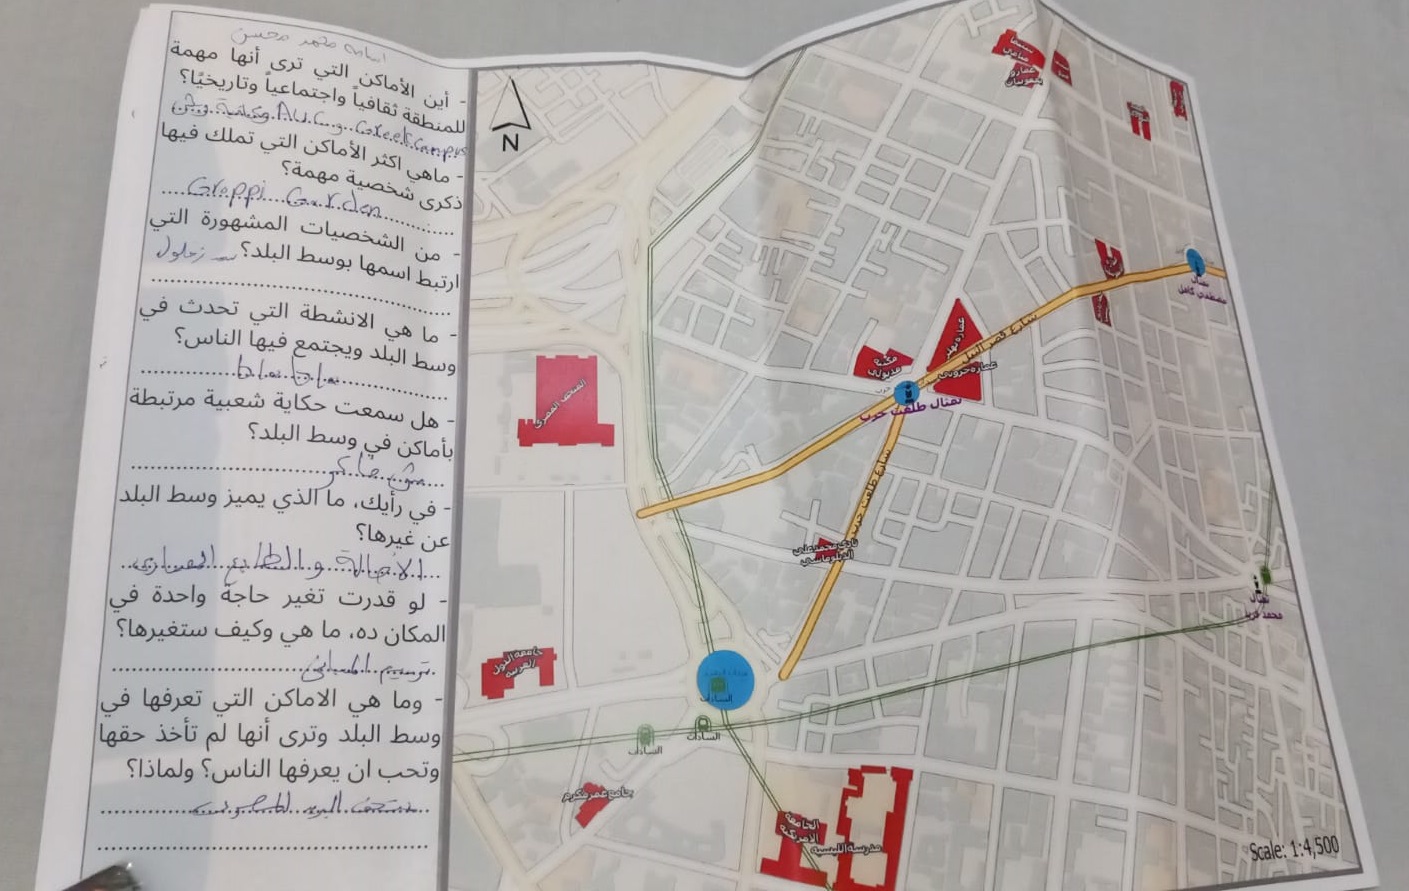 اسامه محمد محسن
- أين الأماكن التي ترى أنها مهمة
للمنطقة ثقافياً واجتماعياً وتاريخيًا؟
AUC و Greek Campus
- ماهي اكثر الأماكن التي تملك فيها
ذكرى شخصية مهمة؟
Groppi Garden
- من الشخصيات المشهورة التي
ارتبط اسمها بوسط البلد؟ سعد زغلول
- ما هي الانشطة التي تحدث في
وسط البلد ويجتمع فيها الناس؟
- هل سمعت حكاية شعبية مرتبطة
بأماكن في وسط البلد؟
- في رأيك، ما الذي يميز وسط البلد
عن غيرها؟
الاصالة والطابع المعماري
- لو قدرت تغير حاجة واحدة في
المكان ده، ما هي وكيف ستغيرها؟
ترميم المباني
- وما هي الاماكن التي تعرفها في
وسط البلد وترى أنها لم تأخذ حقها
وتحب ان يعرفها الناس؟ ولماذا؟
N
سينما
ميامي
عمارة
يعقوبيان
تمثال
مصطفي كامل
شارع قصر النيل
عمارة بهلر
مكتبة
مدبولي
عمارة جروبي
تمثال طلعت حرب
المتحف المصري
شارع طلعت حرب
نادي محمد علي
الدبلوماسي
تمثال
محمد فريد
جامعة الدول
العربية
السادات
السادات
السادات
جامع عمر مكرم
الجامعة
الأمريكية
مدرسة الليسيه
Scale: 1:4,500